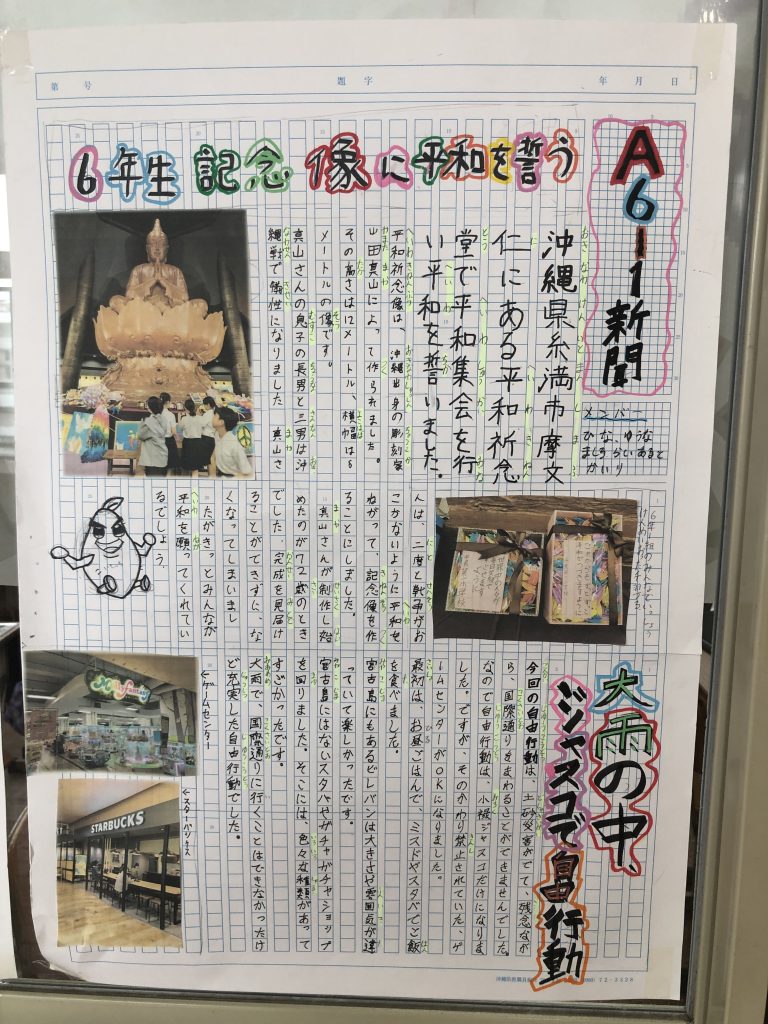 第　号
題字
年　月　日
A6-1新聞
6年生記念像に平和を誓う
メンバー
ひな、ゆうな
沖縄県糸満市摩文
仁にある平和祈念
堂で平和集会を行
い平和を誓いました。
平和祈念像は、沖縄出身の彫刻家
山田真山によって作られました。
その高さは12メートル、横幅は8
メートルの像です。
真山さんの息子の長男と三男は沖
縄戦で犠性になりました。真山さ
んは、二度と戦争がお
こらないように平和を
ねがって、記念像を作
ることにしました。
真山さんが制作し始
めたのが72歳のとき
でした。完成を見届け
ることができずに、な
くなってしまいまし
たがきっとみんなが
平和を願ってくれてい
るでしょう。
大雨の中、
ジャスコで自由行動
今回の自由行動は、土砂災害がでて、残念なが
ら、国際通りをまわることができませんでした。
なので自由行動は、小禄ジャスコだけになりま
した。ですが、そのかわり禁止されていた、ゲ
ームセンターがOKになりました。
最初は、お昼ごはんで、ミスドやスタバでご飯
を食べました。
宮古島にもあるビレバンは大きさや雰囲気が違
っていて楽しかったです。
宮古島にはないスタバやガチャガチャショップ
を回りました。そこには、色々な種類があって
すごかったです。
大雨で、国際通りに行くことはできなかったけ
ど充実した自由行動でした。
←ゲームセンター
←スターバックス
STARBUCKS
72-3328